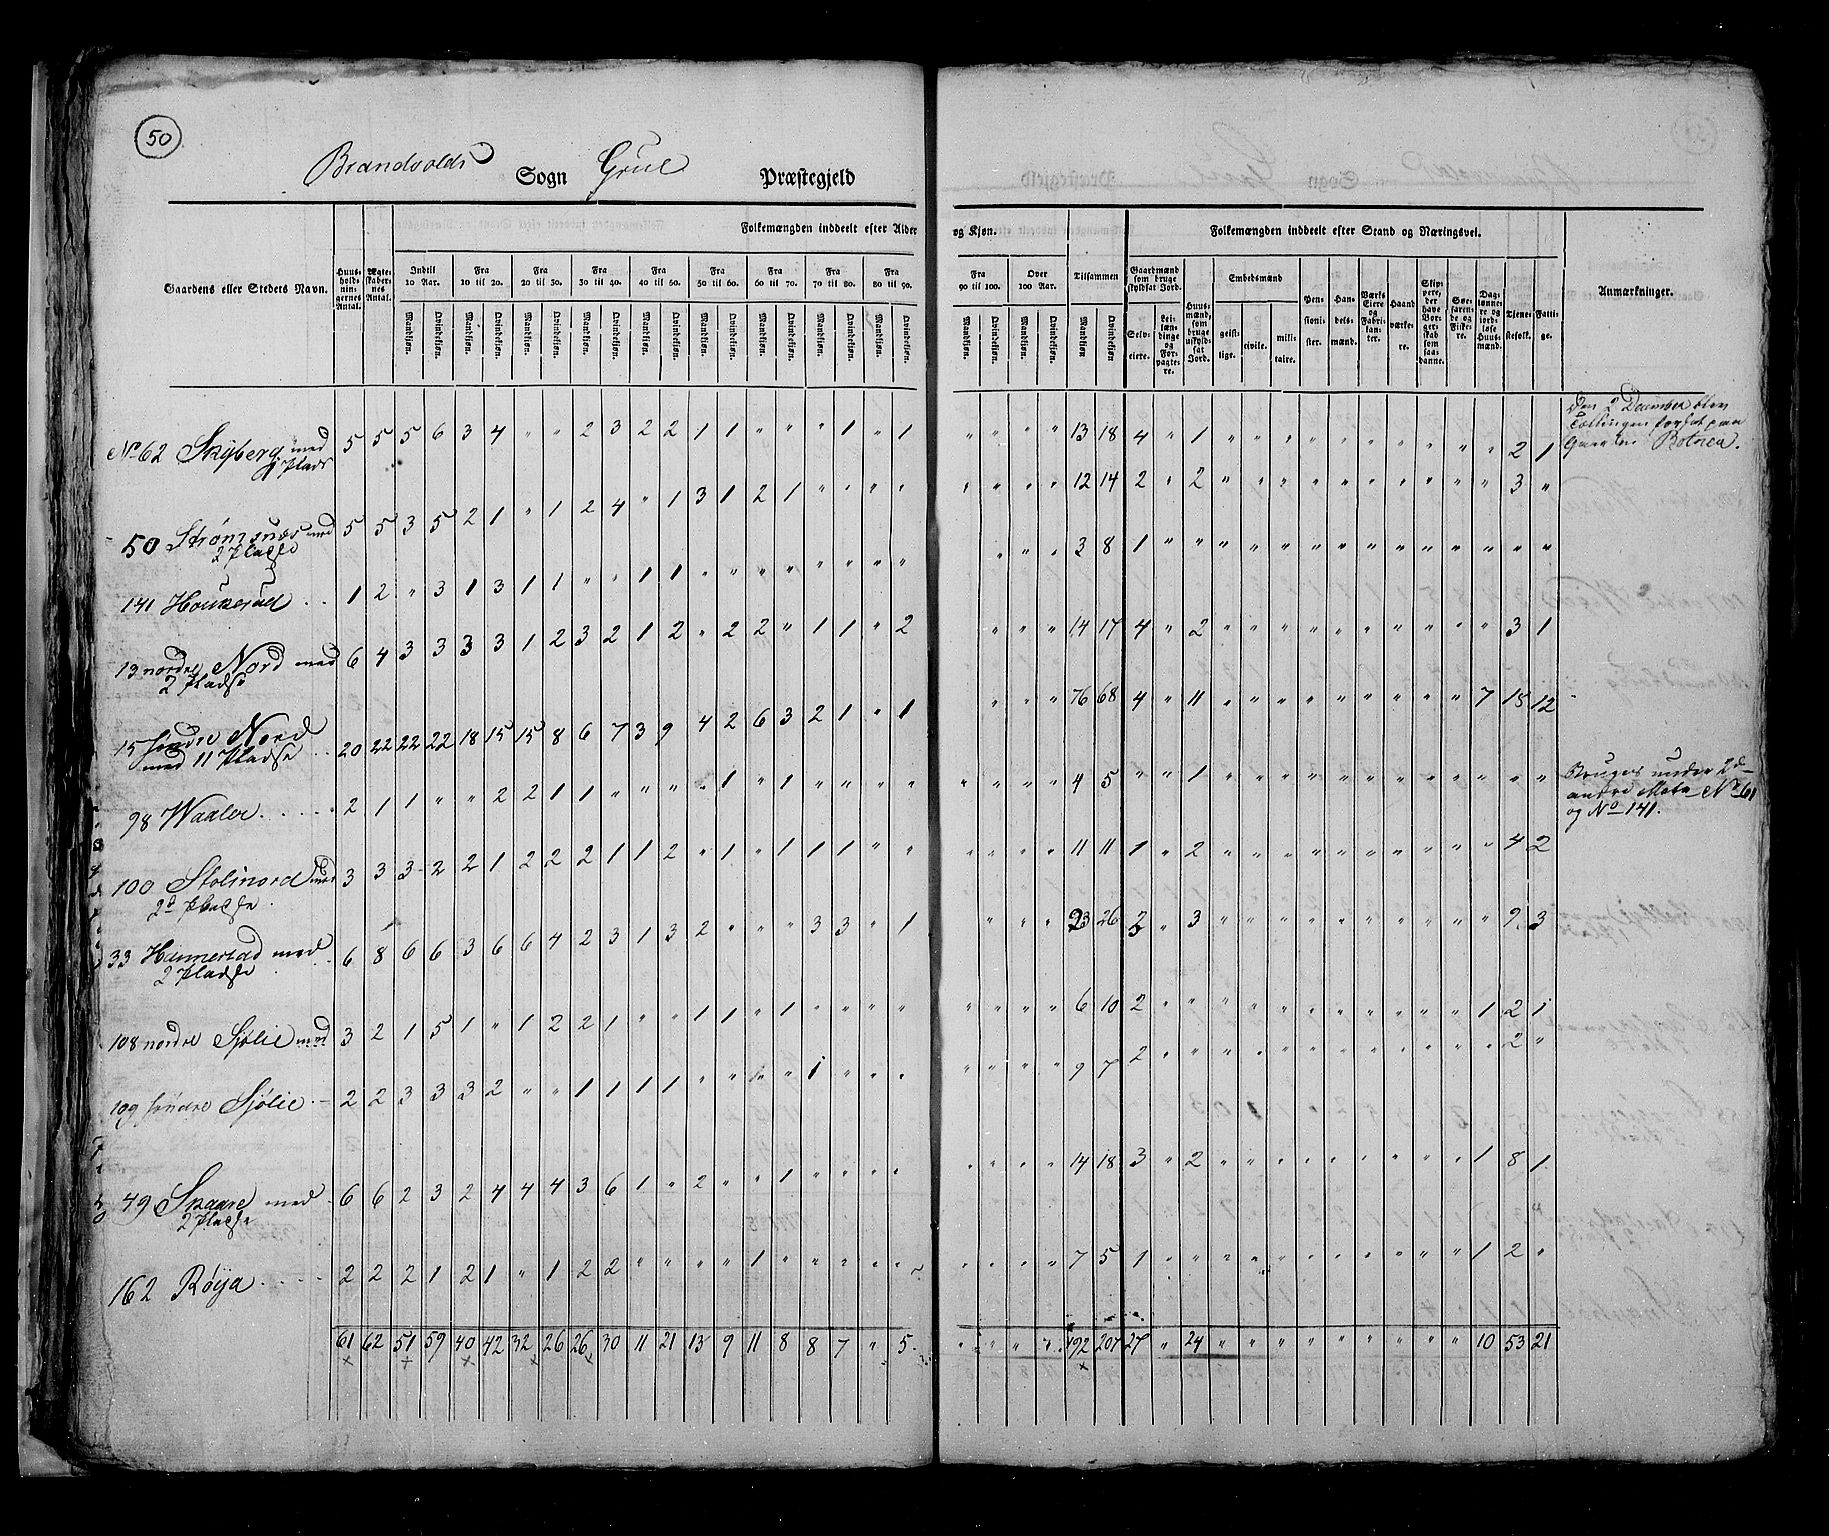 50
Brandvolds Sogn Grue Præstegjeld
Folkemængden inddeelt efter Alder og Kjøn.
Folkemængden inddeelt efter Stand og Næringsvei.
Gaardens eller Stedets Navn.
Huusholdningernes Antal.
Ægteskabernes Antal.
Indtil 10 Aar.
Fra 10 til 20.
Fra 20 til 30.
Fra 30 til 40.
Fra 40 til 50.
Fra 50 til 60.
Fra 60 til 70.
Fra 70 til 80.
Fra 80 til 90.
Fra 90 til 100.
Over 100 Aar.
Tilsammen
Mandkjøn. Qvindekjøn.
Gaardmænd som bruge skyldsat Jord.
Selveiere.
Leilændinge og Forpagtere.
Huusmænd, som bruge uskyldsat Jord.
Embedsmænd
geistlige. civile. militaire.
Pensionister.
Handelsmænd.
Værks Eiere og Fabrikanter.
Haandværkere.
Skippere, der have Borgerskab som saadanne.
Søefarende og Fiskere.
Daglønnere og jordløse Huusmænd.
Tjenestefolk.
Fattige.
Anmærkninger.
No 62 Skyberg med 1 Plads 5 5 5 6 3 4 " " 2 3 2 2 1 1 " " " 1 " 1 " " " " 13 18 4 " 1 " " " " " " " " " " 2 1
Den 2 December blev Tællingen forsat paa Gaarden Botnea.
50 Strømsnæs med 2 Pladse 5 5 3 5 2 1 " 1 2 4 " 1 3 1 2 1 " " " " " " " " 12 14 2 " 2 " " " " " " " " " " 3 "
141 Houkerud 1 2 " 3 1 3 1 1 " " 1 1 " " " " " " " " " " " 3 8 1 " " " " " " " " " " " " " "
13 nordre Nord med 2 Pladse 6 4 3 3 3 3 1 2 3 2 1 2 " 2 2 " 1 1 " 2 " " " 14 17 4 " 2 " " " " " " " " " " 3 1
15 søndre Nord med 11 Pladse 20 22 22 22 18 15 15 8 6 7 3 9 4 2 6 3 2 1 " 1 " " " 76 68 4 " 11 " " " " " " " " " 7 15 12
98 Waaler 2 1 1 " " 2 2 1 1 " " " " 1 " 1 " " " " " " " " 4 5 " " 1 " " " " " " " " " " " "
Bruges under 2de andre Matr No 61 og No 141.
100 Stolinord med 2d Pladse 3 3 3 2 2 1 2 2 2 1 1 2 " 1 " 1 1 1 " " " " " " 11 11 1 " 2 " " " " " " " " " " 4 2
33 Hammerstad med 2 Pladse 6 8 6 6 3 6 6 4 2 3 1 3 2 " " " 3 3 " 1 " " " 23 26 5 " 3 " " " " " " " " " " 9 3
108 nordre Sjølie med 3 2 1 5 1 " 1 2 2 1 " " 1 1 " 1 " " " " " " " " 6 10 2 " " " " " " " " " " " 1 2 1
109 søndre Sjølie 2 2 3 3 3 2 " " 1 1 1 1 " " " " 1 " " " " " " " 9 7 2 " " " " " " " " " " " " 2 "
49 Skaare med 2 Pladse 6 6 2 3 2 4 4 4 3 6 1 " 2 " " 1 " " " " " " " " 14 18 3 " 2 " " " " " " " " " 1 8 1
162 Røya 2 2 2 1 2 1 " 1 2 2 " " " " 1 " " " " " " " " " 7 5 1 " " " " " " " " " " " 1 2 "
61 62 51 59 40 42 32 26 26 30 11 21 13 9 11 8 8 7 " 5 " " " " 192 207 27 " 24 " " " " " " " " " 10 53 21